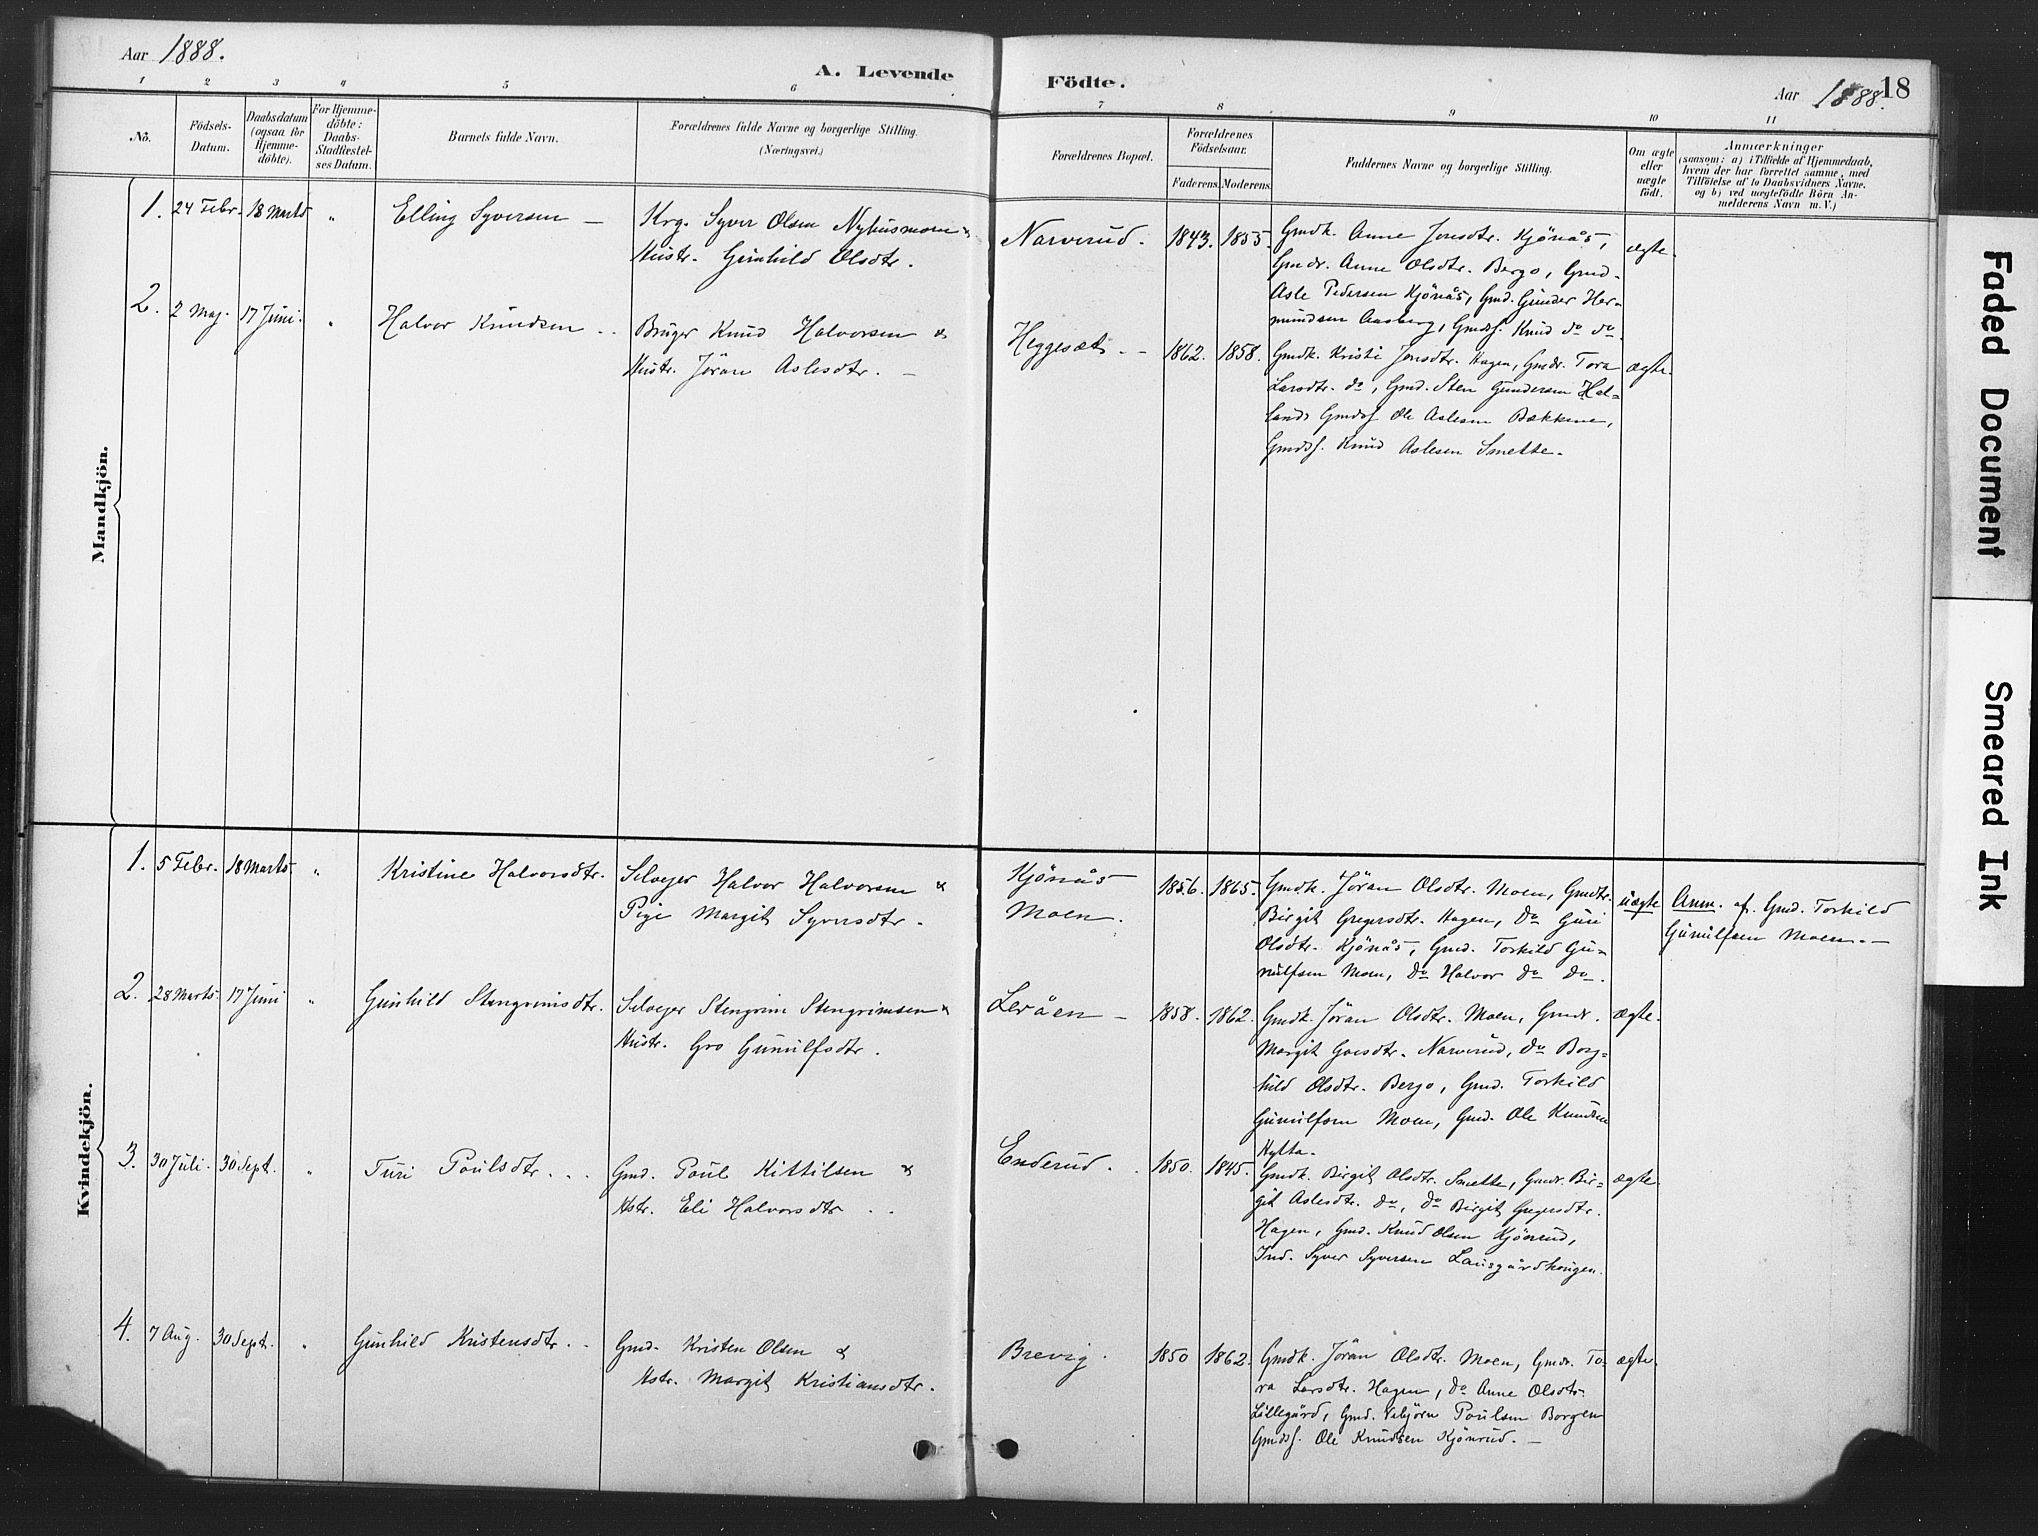 Aar 1888.
A. Levende Födte.
Aar 1888. 18
1 2 3 4 5 6 7 8 9 10 11
No.
Födsels-
Datum.
Daabsdatum
(ogsaa for
Hjemme-
döbte).
For Hjemme-
döbte:
Daabs-
Stadfæstel-
ses Datum.
Barnets fulde Navn.
Forældrenes fulde Navne og borgerlige Stilling.
(Næringsvei.)
Forældrenes Bopæl.
Forældrenes
Födselsaar.
Faderens. Moderens.
Faddernes Navne og borgerlige Stilling.
Om ægte
eller
uægte
født.
Anmærkninger
(saasom: a) i Tilfælde af Hjemmedaab,
hvem der har forrettet samme, med
Tilföielse af to Daabsvidners Navne,
og b) ved uægtefödte Börn An-
melderens Navn m. V.)
Mandkjön.
1. 24 Febr. 18 Marts " Elling Syversen — Krg. Syver Olsen Nyhusmoen &
Hustr. Gunhild Olsdtr.
Narverud. 1843. 1855.
Gmdk. Anne Jonsdtr. Kjönås,
Gmdr. Anne Olsdtr. Bergo, Gmd.
Asle Pedersen Kjönås, Gmd. Gunder Her-
mundsen Aasberg, Gmdsf. Knud do do.
ægte.
2. 2 Maj. 17 Juni. " Halvor Knudsen .. Bruger Knud Halvorsen &
Hustr. Jöran Aslesdtr. —
Heggesæt. — 1862. 1858.
Gmdk. Kristi Jonsdtr. Hagen, Gmdr. Tora
Larsdtr. do, Gmd. Sten Gundersen Hal-
lands Gmdsf. Ole Aslesen Bækkene,
Gmdsf. Knud Aslesen Smette.
ægte.
Kvindekjön.
1. 5 Febr. 18 Marts " Kristine Halvorsdtr. Selvejer Halvor Halvorsen &
Pige Margit Syversdtr.
Kjönås
Moen. 1856. 1865.
Gmdk. Jöran Olsdtr. Moen, Gmdtr.
Birgit Gregersdtr. Hagen, do Guri
Olsdtr. Kjönås, Gmd. Torkild Gu-
nulfsen Moen, do Halvor do do.
uægte
Anm. af Gmd. Torkild
Gunulfsen Moen. —
2. 28 Marts 17 Juni " Gunhild Stengrimsdtr. Selvejer Stengrim Stengrimsen &
Hustr. Gro Gunulfsdtr.
Leråen — 1858. 1862.
Gmdk. Jöran Olsdtr. Moen, Gmdr.
Margit Goesdtr. Narverud, do Borg-
hild Olsdtr. Bergo, Gmd. Torkild
Gunulfsen Moen, Gmd. Ole Knudsen
Hytta.
ægte.
3. 30 Juli. 30 Sept. " Turi Poulsdtr. .. Gmd. Poul Kittilsen &
Hstr. Eli Halvorsdtr ..
Enderud. . 1850. 1845.
Gmdk. Birgit Olsdtr. Smette, Gmdr. Bir-
git Aslesdtr. do, do Birgit Gregersdtr.
Hagen, Gmd. Knud Olsen Kjönrud,
Ind. Syver Syversen Lausgårdhougen.
ægte.
4. 7 Aug. 30 Sept. " Gunhild Kristensdtr. . Gmd. Kristen Olsen &
Hstr. Margit Kristiansdtr.
Brevig. 1850 1862.
Gmdk. Jöran Olsdtr. Moen, Gmdr. To-
ra Larsdtr. Hagen, do Anne Olsdtr.
Lillegård, Gmd. Vebjörn Poulsen Borgen
Gmdsf. Ole Knudsen Kjönrud. —
ægte.
Faded Document
Smeared Ink